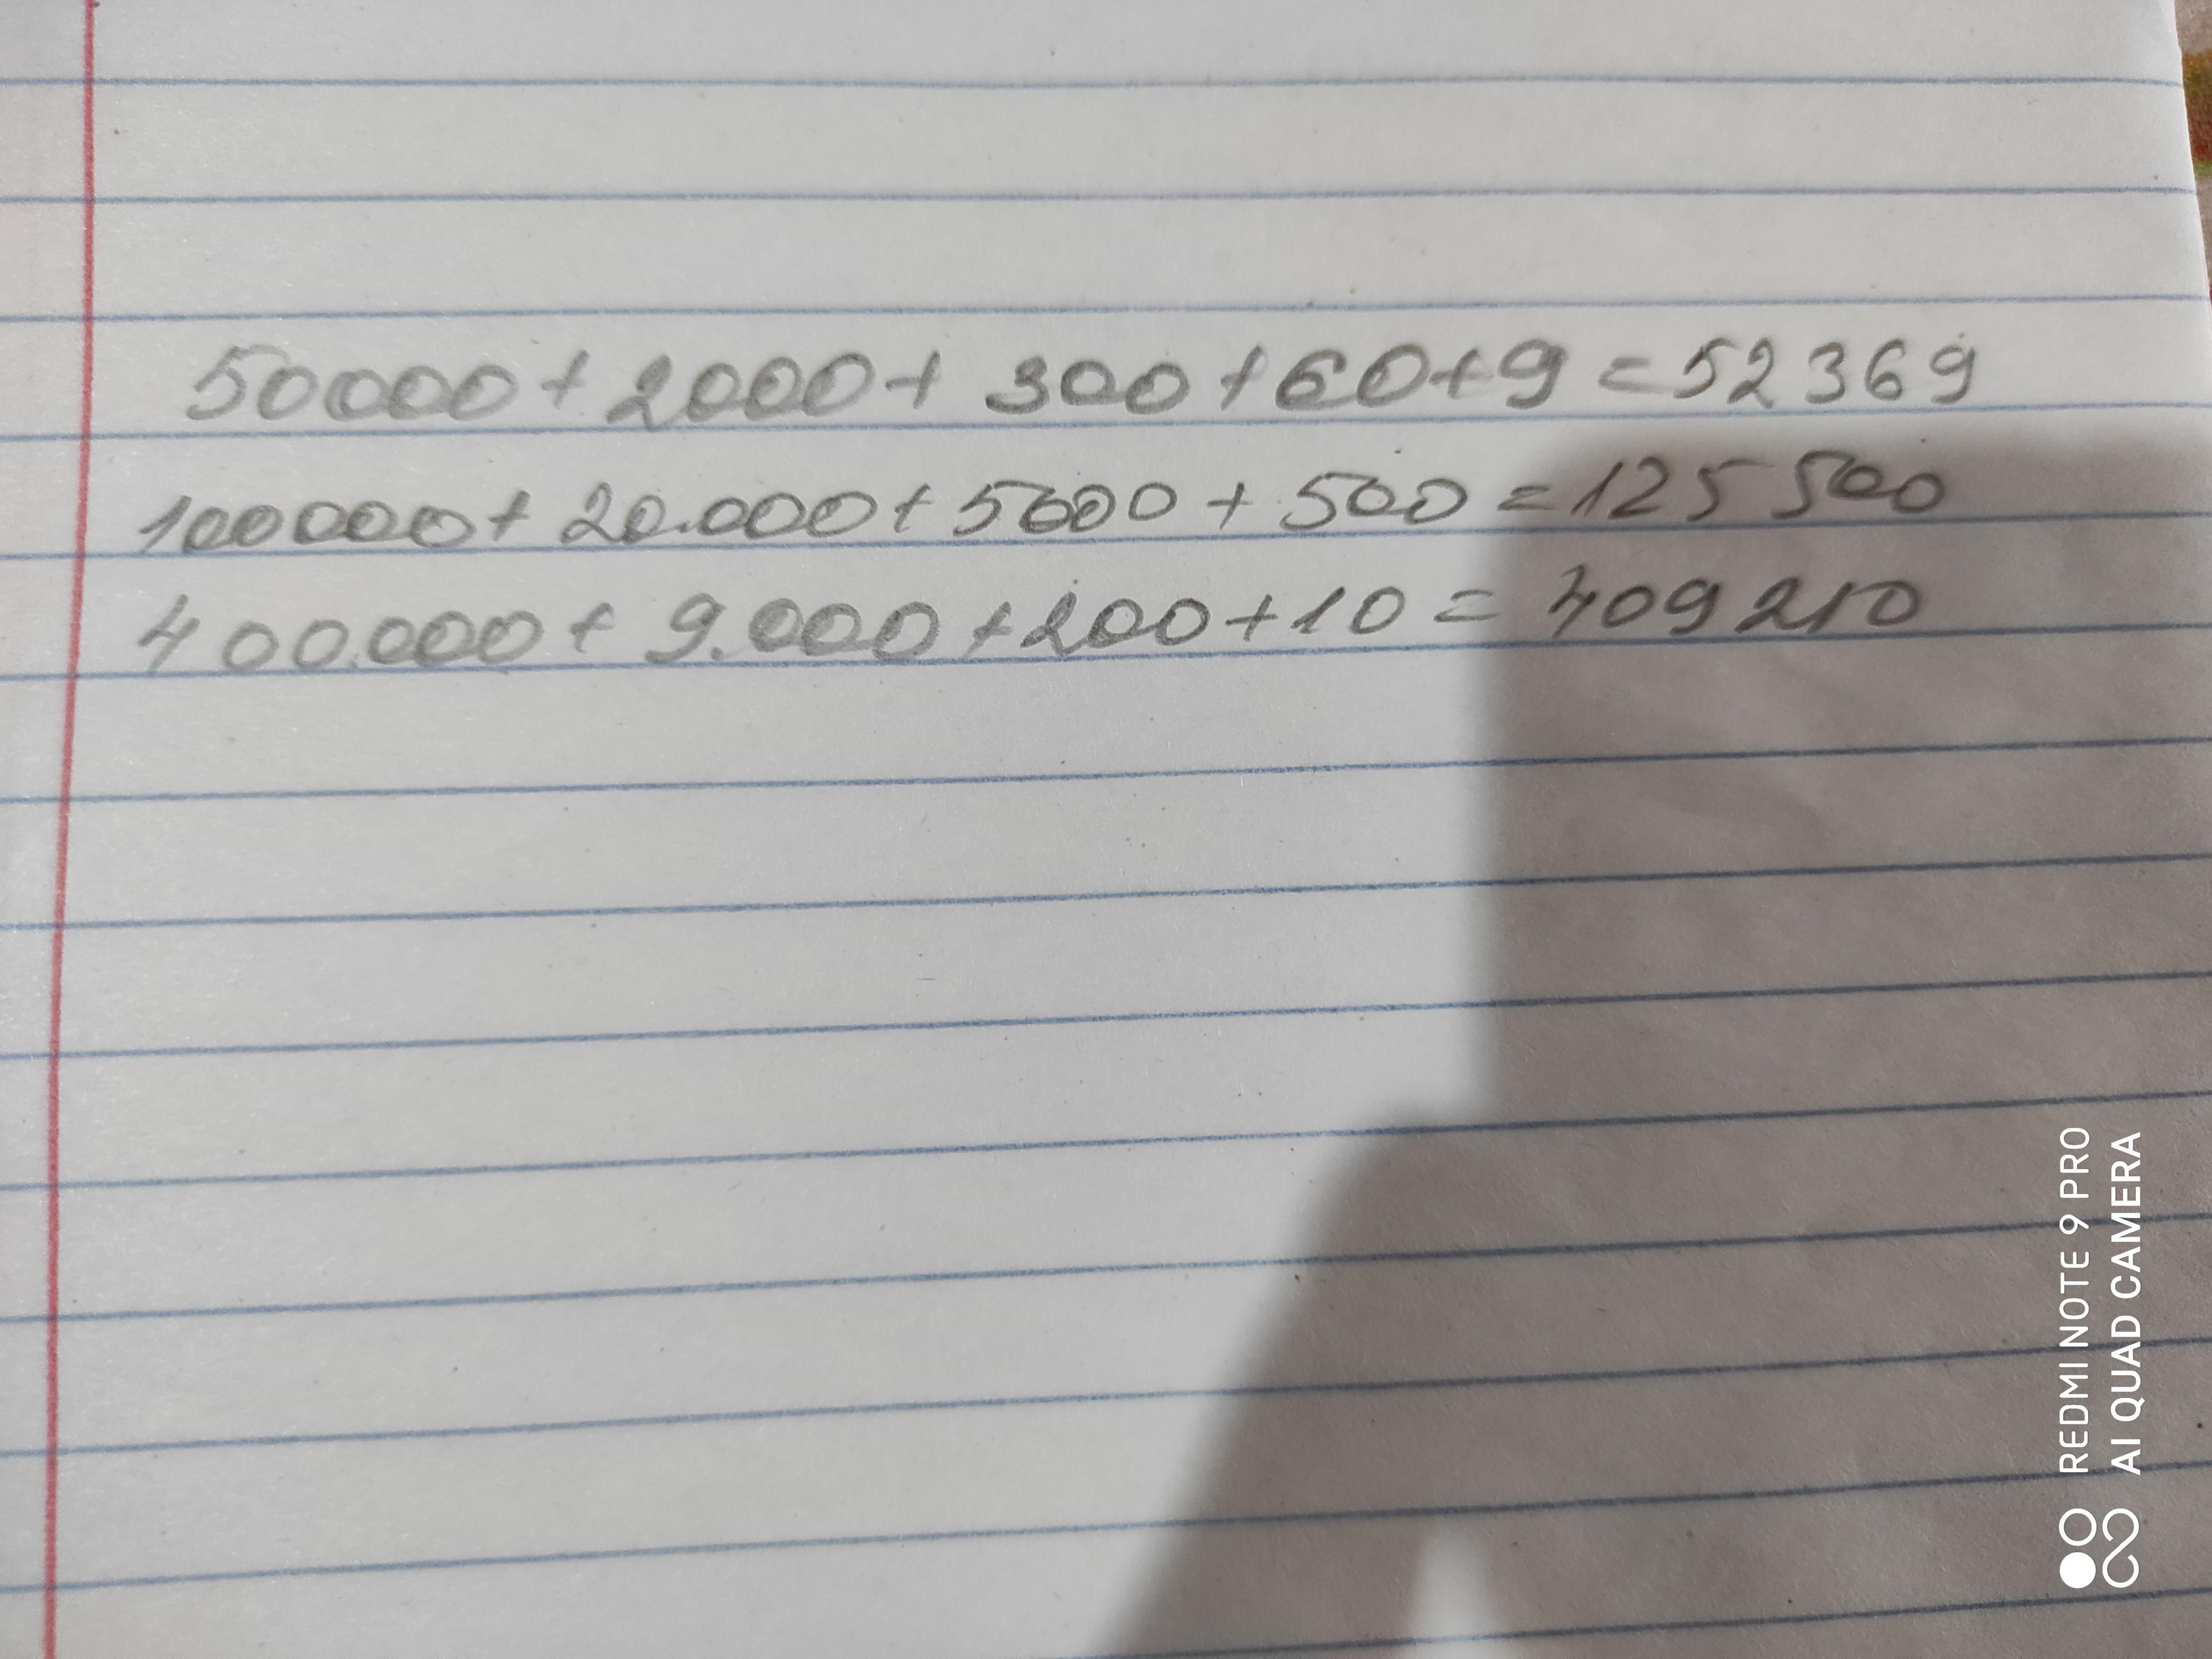 50000+2000+ 300+60+9 =52369
100000+ 20.000+5000 + 500 =125 500
400.000+ 9.000 +200+10 = 409 210
REDMI NOTE 9 PRO
AI QUAD CAMERA